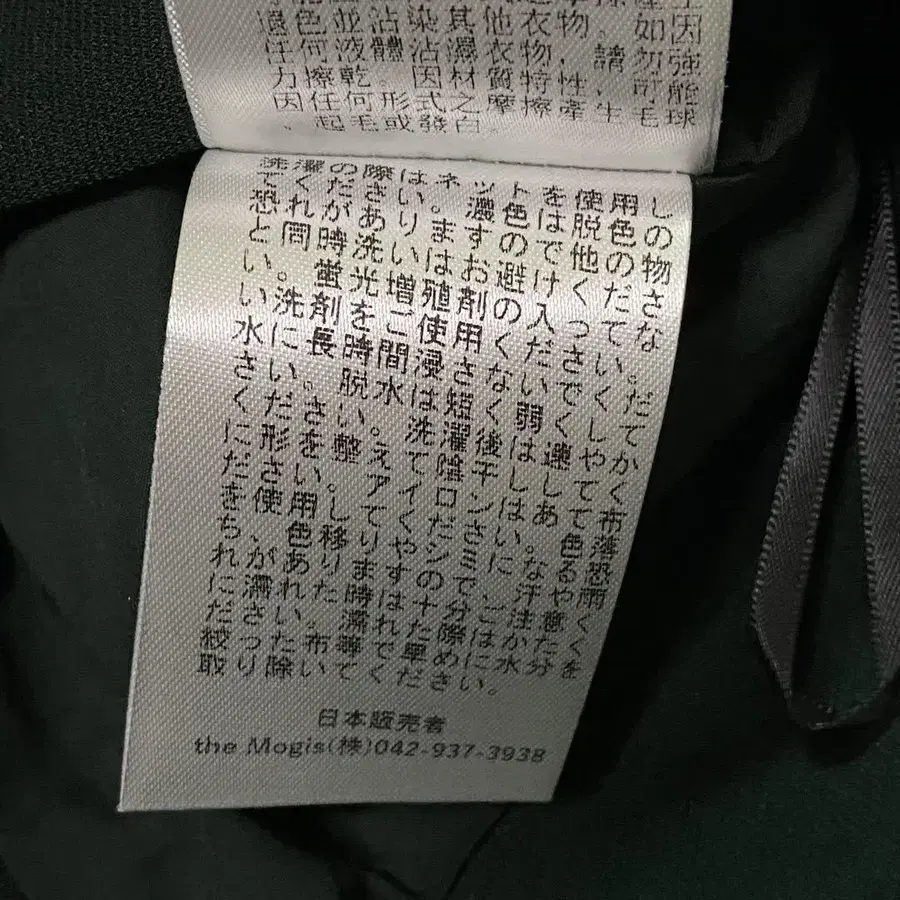 色並沾染其他衣物。如因
任何液體沾濕衣物，請勿強
力擦乾。因材質特性，可能
因任何形式之摩擦產生毛球
、起毛或發白。
洗濯の際はネットを使用し
てください。濃色は脱色の
恐れがありますので他の物
と同時洗いはお避けくださ
い。蛍光増殖剤の入ってな
い洗剤をご使用ください。
水に長時間浸さなくでくだ
さい。脱水は短く弱くして
ください。洗濯後は速やか
に形を整えて陰干ししてく
ださい。アイロンはあて布
を使用してください。色落
ち、色移りやシミになる恐
れがあります。汗や雨
に濡れた時は十分ご注意く
ださい。濡れた際はかたく
絞った布等で早めに水分を
取り除いてください。
日本販売者
the Mogis(株)042-937-3938